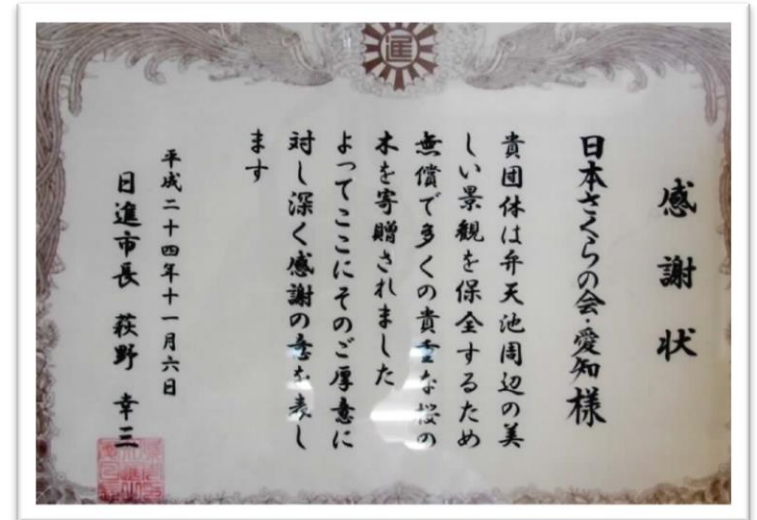 進
感謝状
日本さくらの会・愛知様
貴団体は弁天池周辺の美
しい景観を保全するため
無償で多くの貴重な桜の
木を寄贈されました
よってここにそのご厚意に
対し深く感謝の意を表し
ます
平成二十四年十一月六日
日進市長 萩野幸三